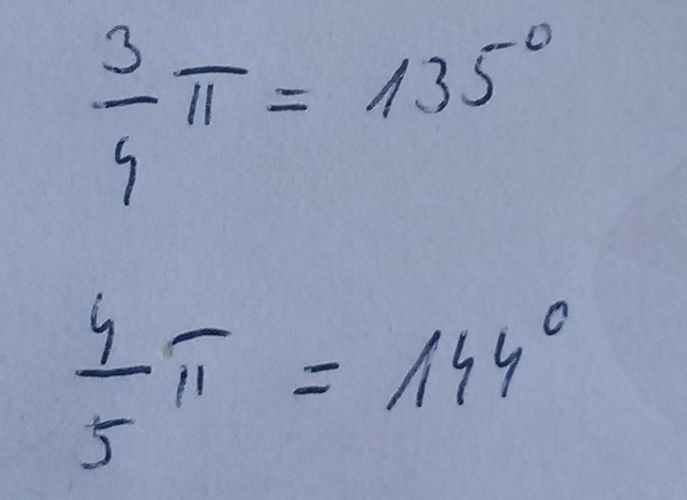 3/4 π = 135°
4/5 π = 144°